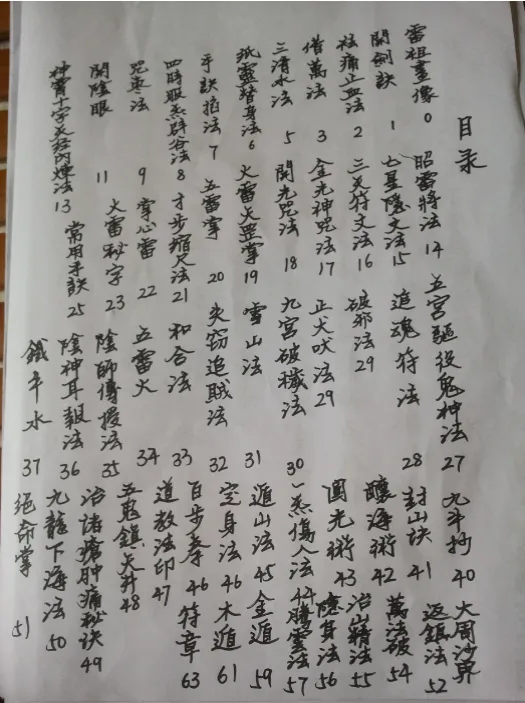 目录
雷祖畫像 0
開劍訣 1
祛痛止血法 2
借萬法 3
三清水法 5
紙靈替身法 6
手訣掐法 7
四時服炁辟谷法 8
咒棗法 9
開陰眼 11
神霄十字天經內煉法 13
昭雷將法 14
七星隱文法 15
三天符文法 16
金光神咒法 17
開光咒法 18
火雷火罡掌 19
五雷掌 20
才步縮尺法 21
掌心雷 22
火雷秘字 23
常用手訣 25
五宮驅役鬼神法 27
追魂符法 28
破邪法 29
正火吠法 29
九宮破穢法 30
雪山法 31
失竊追賊法 32
和合法 33
五雷火 34
陰師傳授法 35
陰神耳報法 36
鐵牛水 37
九斗抄 40
封山訣 41
釀海術 42
圓光術 43
一炁傷人法 44
遁山法 45
定身法 46
百步拳 46
道教法印 47
五鬼鎮天井 48
治諸瘡肿痛秘訣 49
九龍下海法 50
絕命掌 51
大周沙界
返銀法 52
萬法破 54
治山精法 55
隱身法 56
騰雲法 57
金遁 59
木遁 61
符章 63